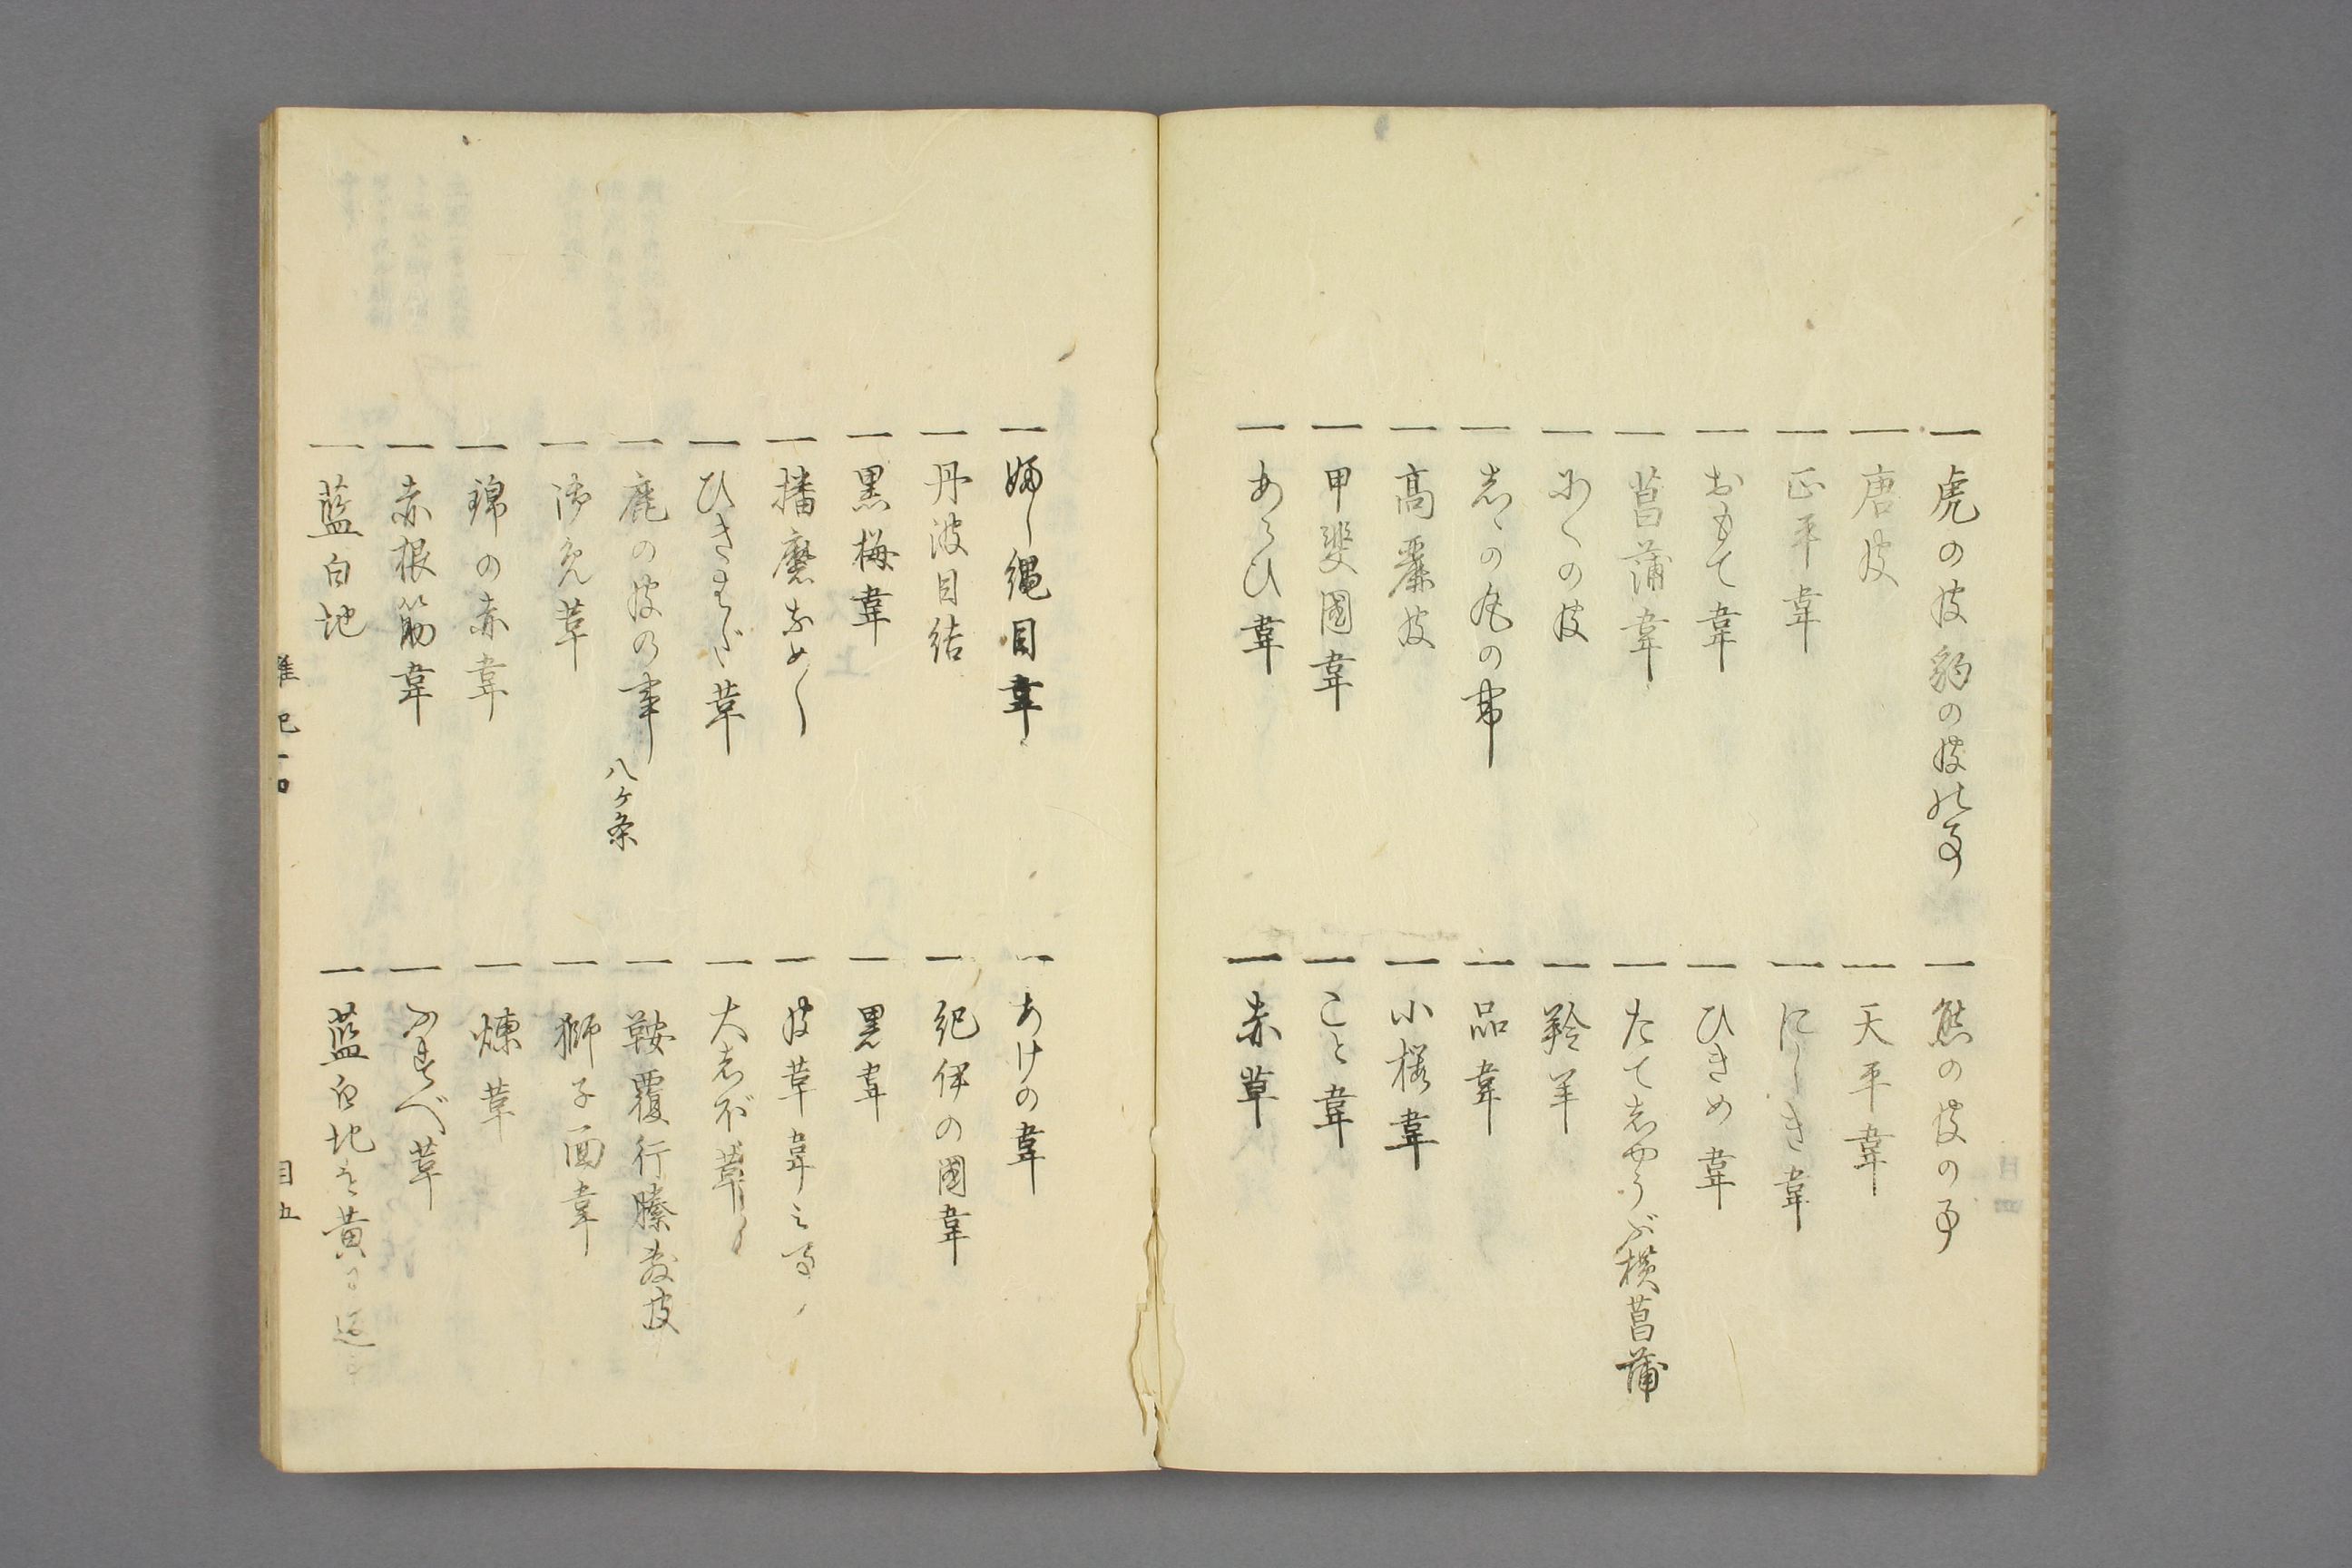 一 虎の皮豹の皮の事
一 熊の皮の事
一 唐皮
一 天平韋
一 正平韋
一 にしき韋
一 おもて韋
一 ひきめ韋
一 菖蒲韋
一 たてしやうぶ横菖蒲
一 にくの皮
一 羚羊
一 しゝの丸の事
一 品韋
一 高麗皮
一 小桜韋
一 甲斐國韋
一 こと韋
一 あらひ韋
一 赤革
一 ふし縄目韋
一 あけの韋
一 丹波目結
一 紀伊の國韋
一 黒梅韋
一 黒韋
一 播磨なめし
一 皮革韋之事
一 ひきはだ革
一 大しぼ革
一 鹿の皮の事 八ケ条
一 鞍覆行縢敷皮
一 御免革
一 獅子面韋
一 錦の赤韋
一 煉革
一 赤根筋韋
一 ふすべ革
一 藍白地
一 藍白地を黄に返
雑記十四
目五